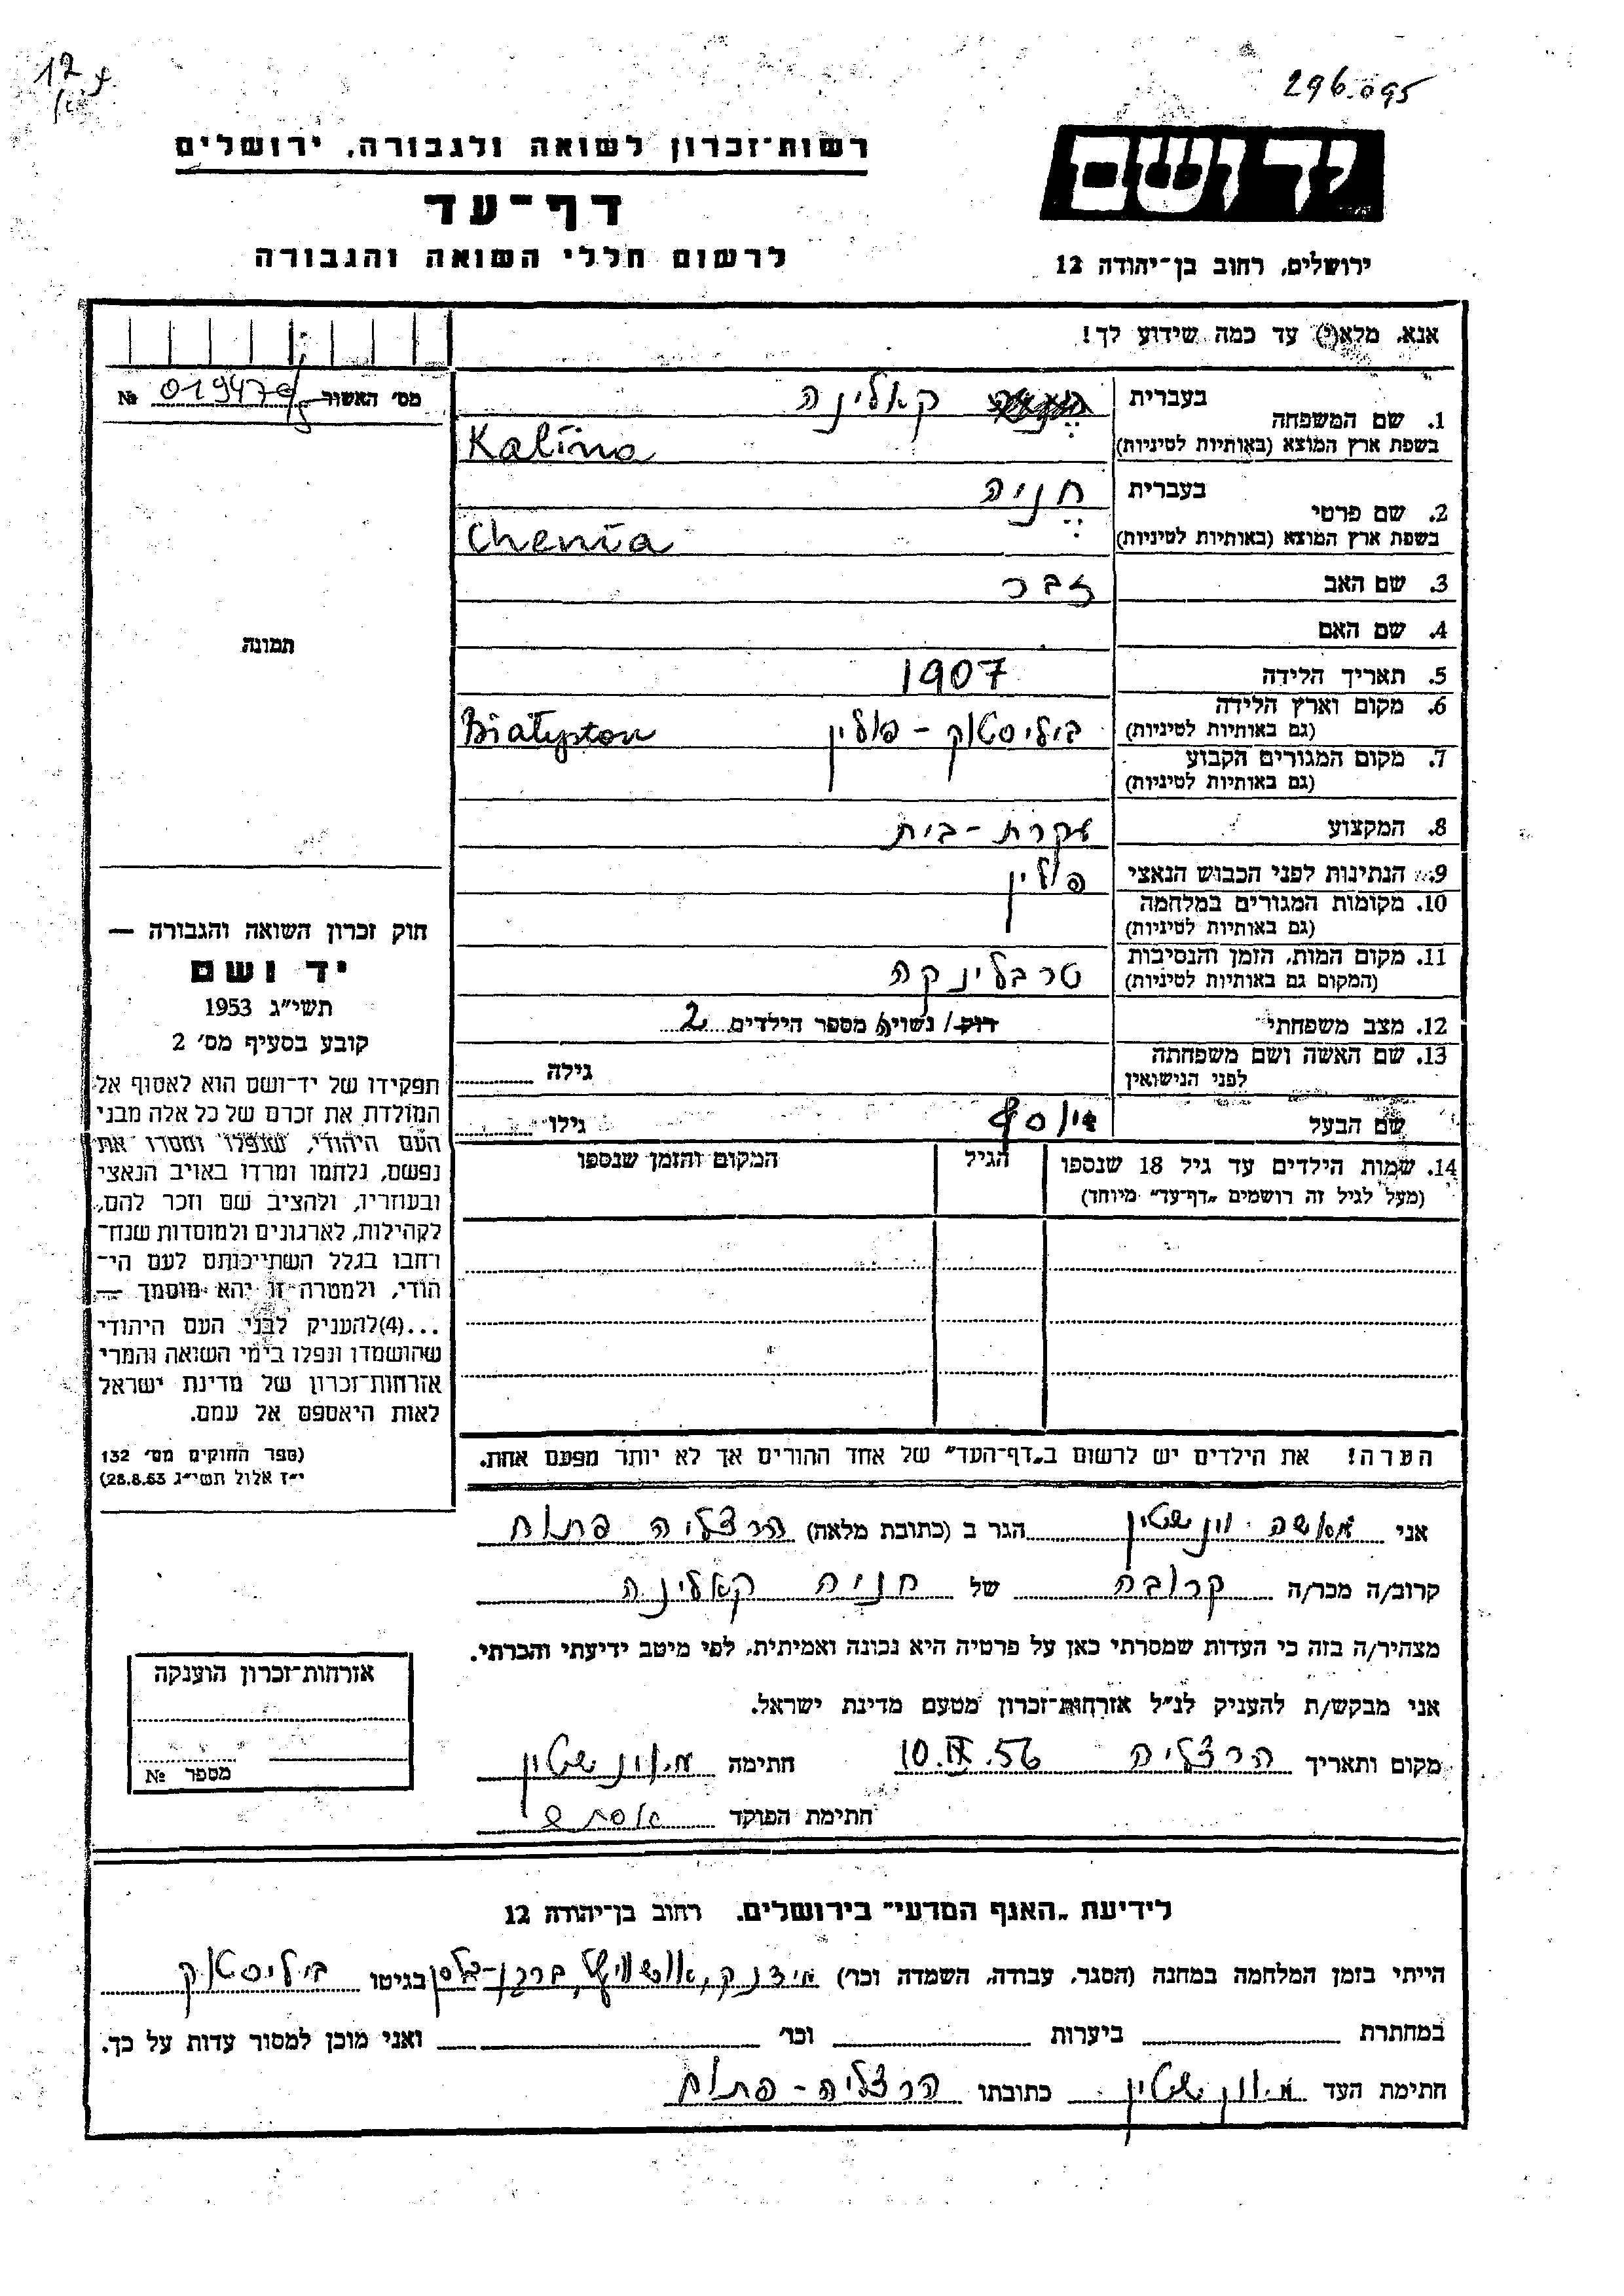 296.095
רשות-זכרון לשואה ולגבורה, ירושלים
יד ושם
דף-עד
לרשום חללי השואה והגבורה
ירושלים, רחוב בן-יהודה 12
אנא, מלא(י) עד כמה שידוע לך!
מס' האשור № 019470/5
1. שם המשפחה
בעברית קאלינה
בשפת ארץ המוצא (באותיות לטיניות) Kalina
2. שם פרטי
בעברית חניה
בשפת ארץ המוצא (באותיות לטיניות) Chenia
3. שם האב
4. שם האם
5. תאריך הלידה 1907
6. מקום וארץ הלידה ביליסטוק - פולין Białystok
(גם באותיות לטיניות)
7. מקום המגורים הקבוע
(גם באותיות לטיניות)
8. המקצוע עקרת-בית
9. הנתינות לפני הכבוש הנאצי פולין
10. מקומות המגורים במלחמה
(גם באותיות לטיניות)
11. מקום המות, הזמן והנסיבות טרבלינקה
(המקום גם באותיות לטיניות)
12. מצב משפחתי רוק/ נשוי/אה מספר הילדים 2
13. שם האשה ושם משפחתה
לפני הנישואין גילה
שם הבעל גילו
14. שמות הילדים עד גיל 18 שנספו הגיל המקום והזמן שנספו
(מעל לגיל זה רושמים "דף-עד" מיוחד)
הערה! את הילדים יש לרשום ב"דף-העד" של אחד ההורים אך לא יותר מפעם אחת.
תמונה
חוק זכרון השואה והגבורה —
יד ושם
תשי"ג 1953
קובע בסעיף מס' 2
תפקידו של יד-ושם הוא לאסוף אל
המולדת את זכרם של כל אלה מבני
העם היהודי, שנפלו ומסרו את
נפשם, נלחמו ומרדו באויב הנאצי
ובעוזריו, ולהציב שם וזכר להם,
לקהילות, לארגונים ולמוסדות שנח-
רבו בגלל השתייכותם לעם הי-
הודי, ולמטרה זו יהא מוסמך —
...(4) להעניק לבני העם היהודי
שהושמדו ונפלו בימי השואה והמרי
אזרחות-זכרון של מדינת ישראל
לאות היאספם אל עמם.
(ספר החוקים מס' 132
י"ז אלול תשי"ג 28.8.53)
אני מאשה וינשטין הגר ב (כתובת מלאה) הרצליה פתוח
קרוב/ה מכר/ה קרובה של חניה קאלינה
מצהיר/ה בזה כי העדות שמסרתי כאן על פרטיה היא נכונה ואמיתית, לפי מיטב ידיעתי והכרתי.
אני מבקש/ת להעניק לנ"ל אזרחות-זכרון מטעם מדינת ישראל.
מקום ותאריך הרצליה 10.IX.56 חתימה מ. וינשטין
חתימת הפוקד
אזרחות-זכרון הוענקה
מספר №
לידיעת "האגף המדעי" בירושלים, רחוב בן-יהודה 12
הייתי בזמן המלחמה במחנה (הסגר, עבודה, השמדה וכו') מידנק, אושוויץ, ברגן-בלסן בגיטו ביליסטוק
במחתרת ביערות וכו' ואני מוכן למסור עדות על כך.
חתימת העד מ. וינשטין כתובתו הרצליה - פתוח